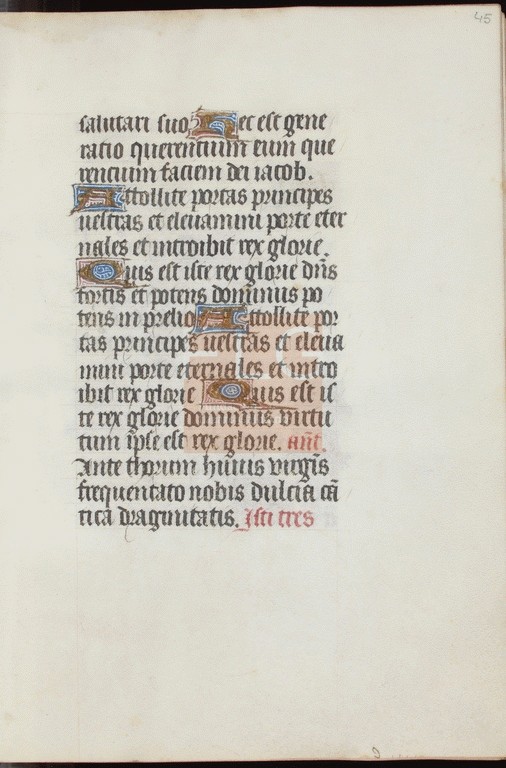 45
salutari suo Hec est gene
ratio querentium eum que
rentium faciem dei iacob.
Attollite portas principes
uestras et eleuamini porte eter
nales et introibit rex glorie.
Quis est iste rex glorie dñs
fortis et potens dominus po
tens in prelio Attollite por
tas principes uestras et eleua
mini porte eternales et intro
ibit rex glorie Quis est is
te rex glorie dominus uirtu
tum ipse est rex glorie. añt.
Ante thorum huius uirgīs
frequentato nobis dulcia cā
tica dragmatis. Isti tres